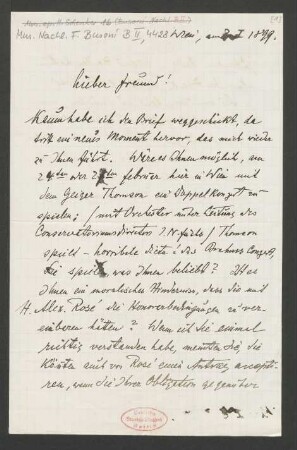 Mus. Nachl. F. Busoni B II, 4423 Wien, am 1899.
Lieber Freund!
Kaum habe ich den Brief weggeschickt, da
tritt ein neues Moment hervor, das mich wieder
zu Ihnen führt. Wäre es Ihnen möglich, am
Februar hier in Wien mit
dem Geiger Thomson ein Doppelkonzert zu
spielen; (mit Orchester unter Leitung des
Conservatoriumsdirector) Thomson
spielt – horribile dictu! – das Brahms Conzert,
Sie spielen was Ihnen beliebt? Wäre
Ihnen ein moralisches Hindernis, dass Sie mit
H. Alex. Rosé die Honorarbedingungen zu ver-
einbaren hätten? Wenn ich Sie einmal
richtig verstanden habe, meinten Sie, Sie
könnten auch von Rosé einen Antrag accepti-
ren, wenn Sie Ihre Obligation gegenüber